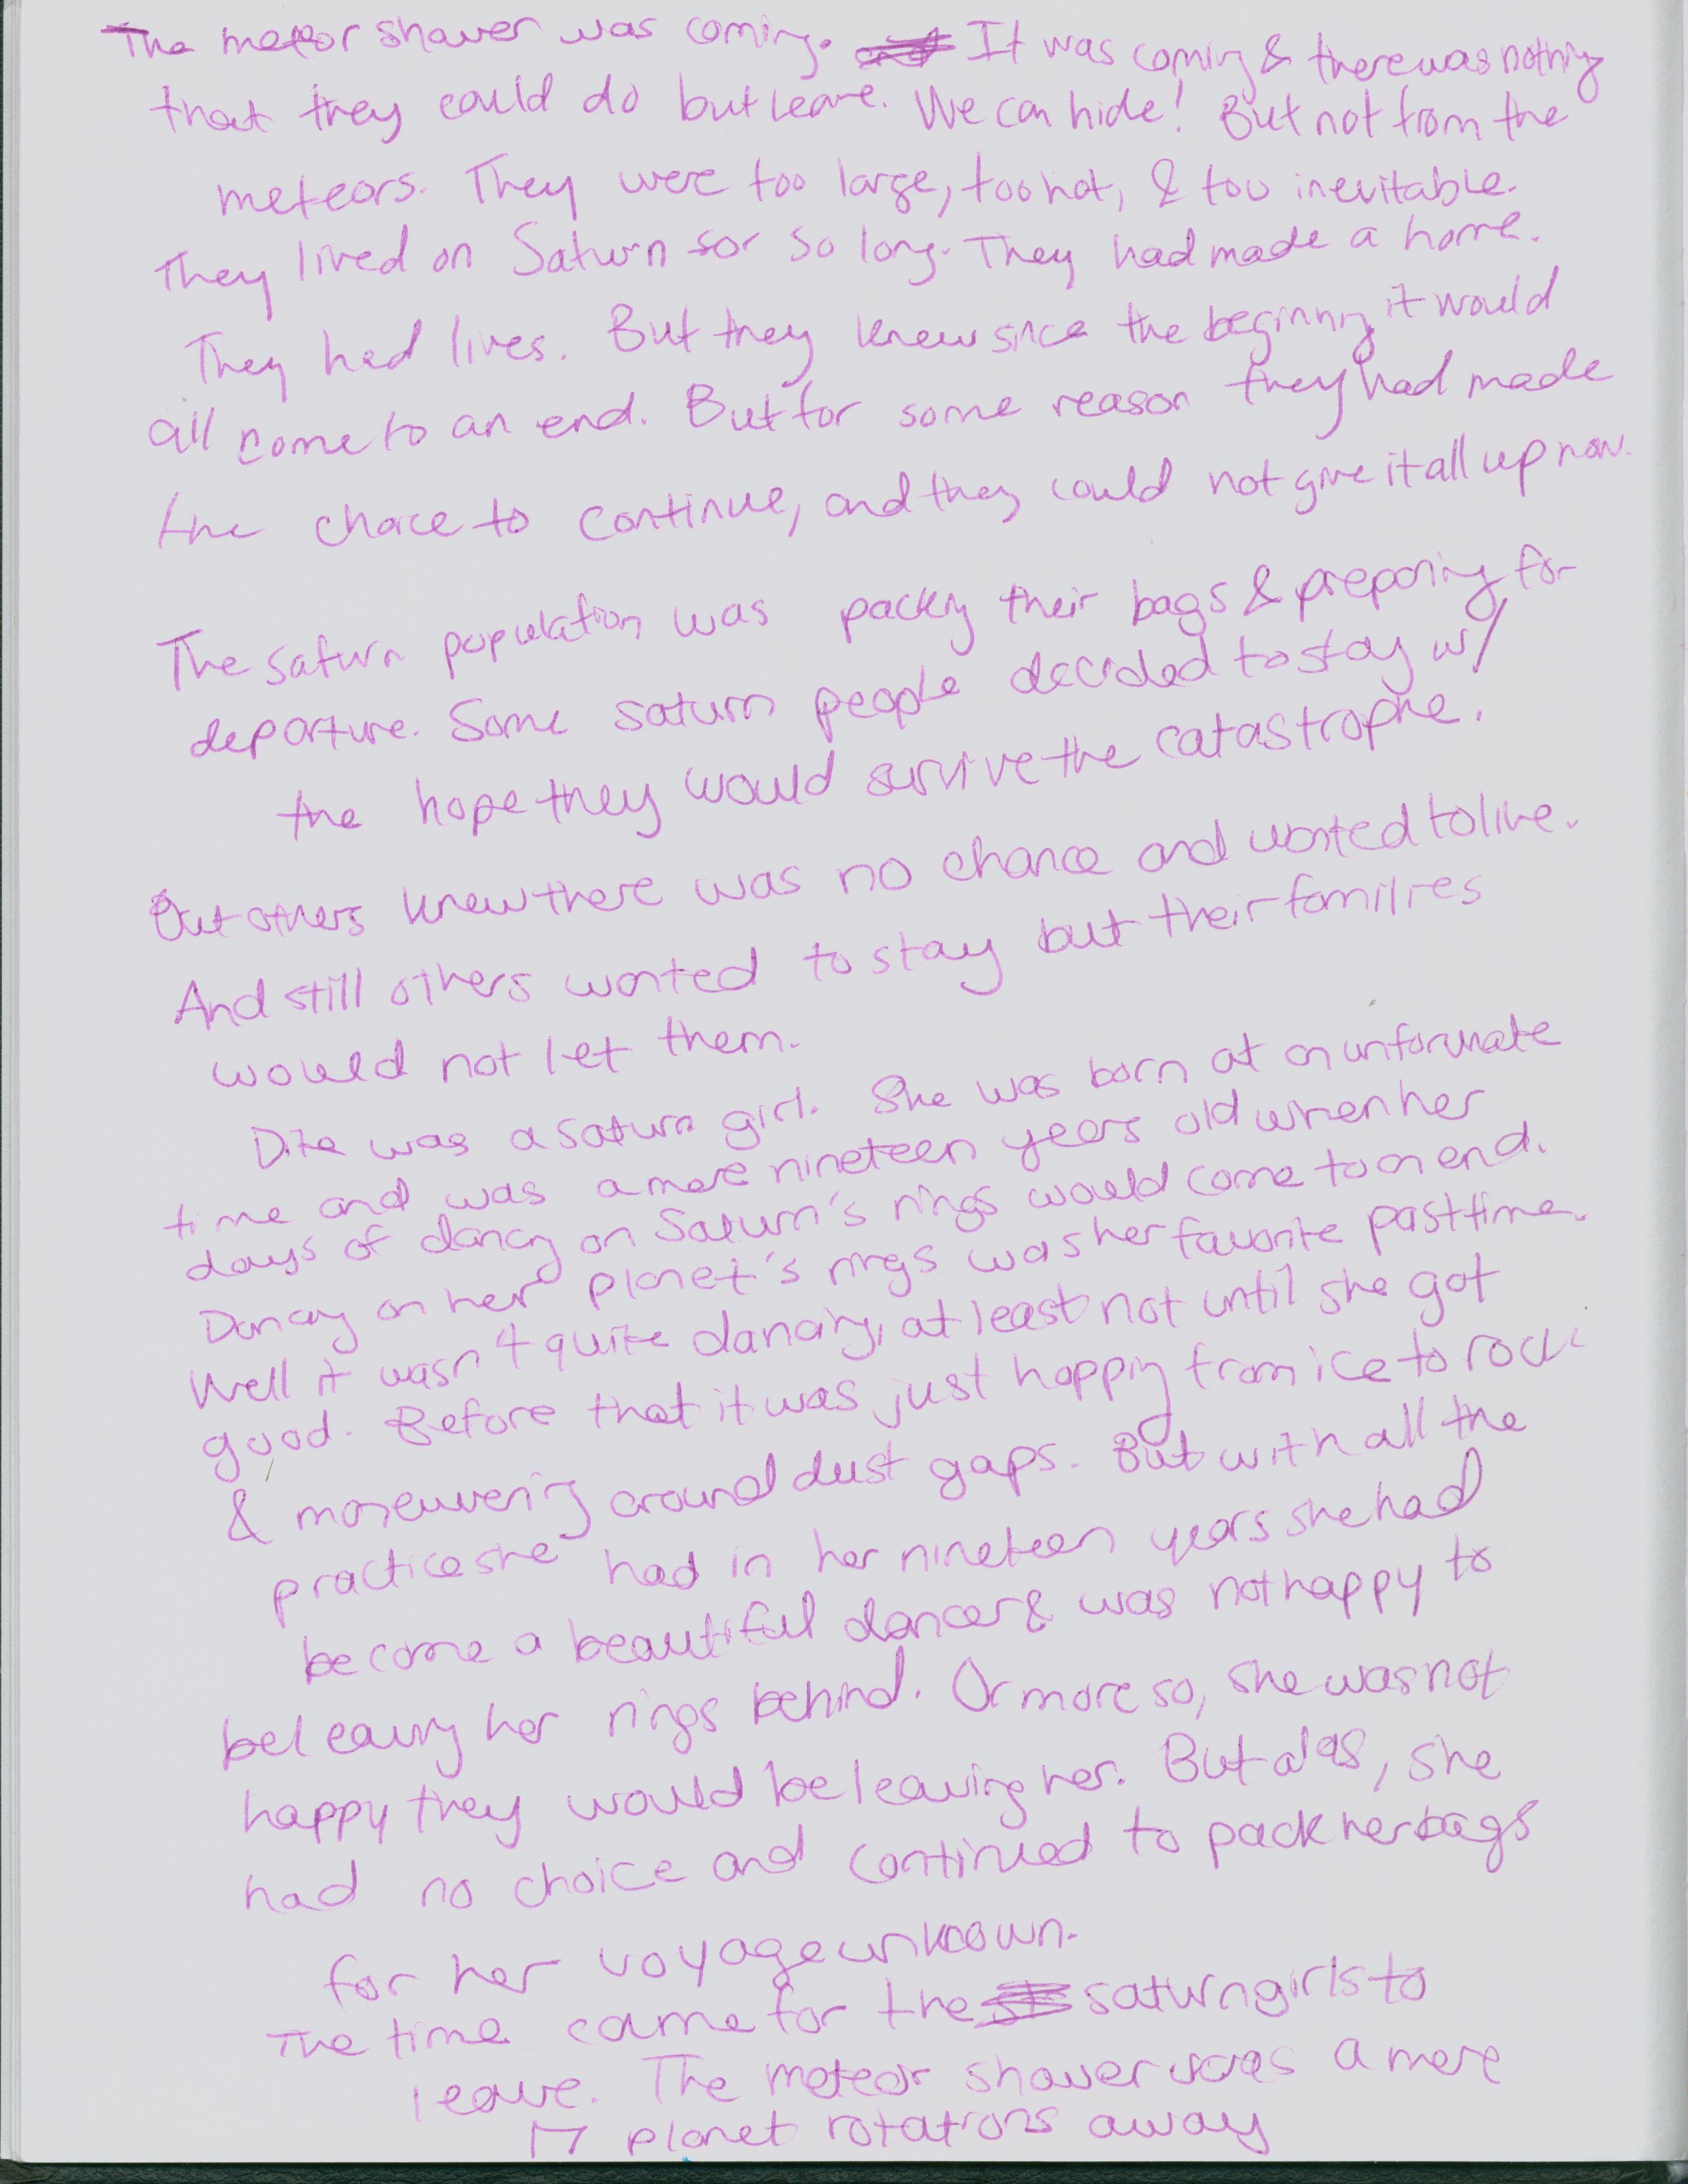 The meteor shower was coming. It was coming & there was nothing
that they could do but leave. We can hide! But not from the
meteors. They were too large, too hot, & too inevitable.
They lived on Saturn for so long. They had made a home.
They had lives. But they knew since the beginning it would
all come to an end. But for some reason they had made
the choice to continue, and they could not give it all up now.
The saturn population was packing their bags & preparing for
departure. Some saturn people decided to stay w/
the hope they would survive the catastrophe.
But others knew there was no chance and wanted to live.
And still others wanted to stay but their families
would not let them.
Dite was a saturn girl. She was born at an unforunate
time and was a mere nineteen years old when her
days of dancing on Saturn's rings would come to an end.
Dancing on her planet's rings was her favorite pasttime.
Well it wasn't quite dancing, at least not until she got
good. Before that it was just hopping from ice to rock
& maneuvering around dust gaps. But with all the
practice she had in her nineteen years she had
become a beautiful dancer & was not happy to
be leaving her rings behind. Or more so, she was not
happy they would be leaving her. But alas, she
had no choice and continued to pack her bags
for her voyage unknown.
The time came for the saturn girls to
leave. The meteor shower was a mere
17 planet rotations away